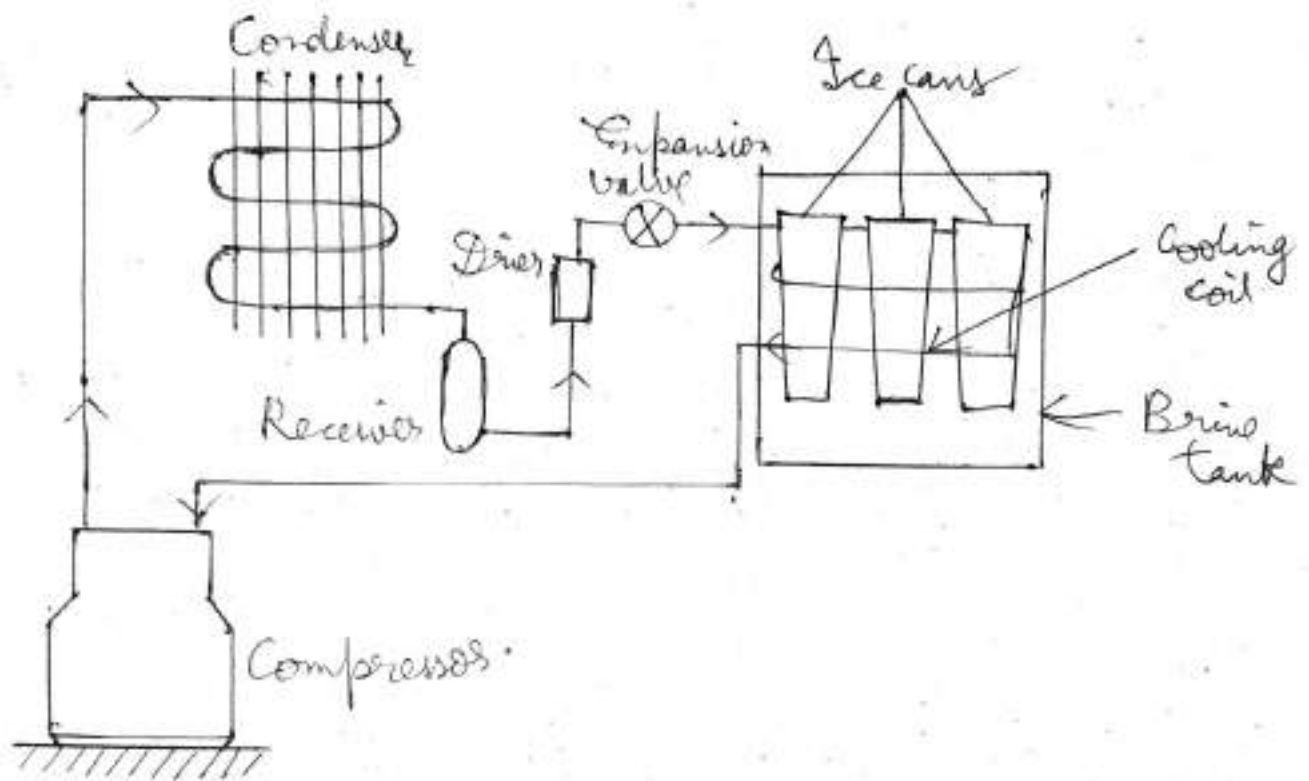 Condenser
Ice cans
Expansion
valve
Drier
Cooling
coil
Receiver
Brine
tank
Compressor.